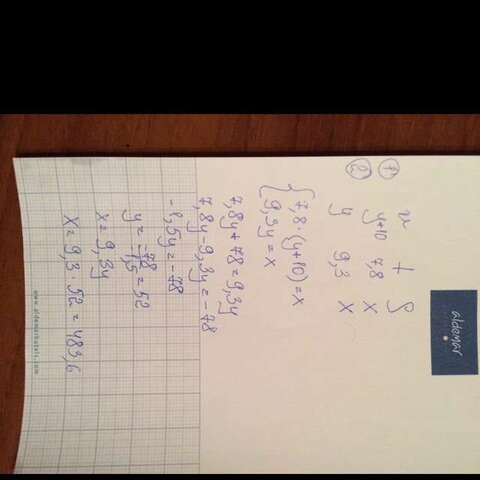 aldemar
v t S
① y+10 7,8 x
② y 9,3 x
{ 7,8·(y+10)=x
9,3y=x
7,8y+78=9,3y
7,8y-9,3y=-78
-1,5y=-78
y=-78/-1,5=52
x=9,3y
x=9,3·52=483,6
www.aldemarhotels.com